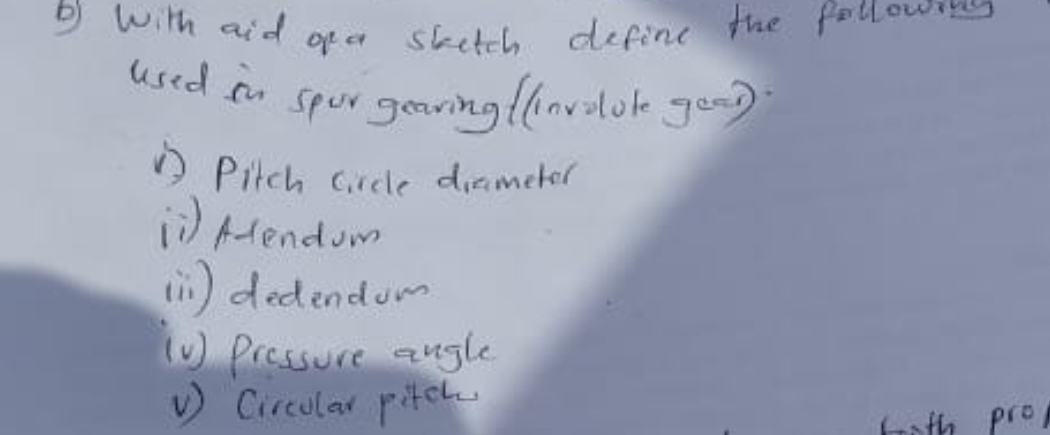 b) With aid of a sketch define the following
used in spur gearing (involute gear).
i) Pitch Circle diameter
ii) Adendum
iii) dedendum
iv) Pressure angle
v) Circular pitch
tooth